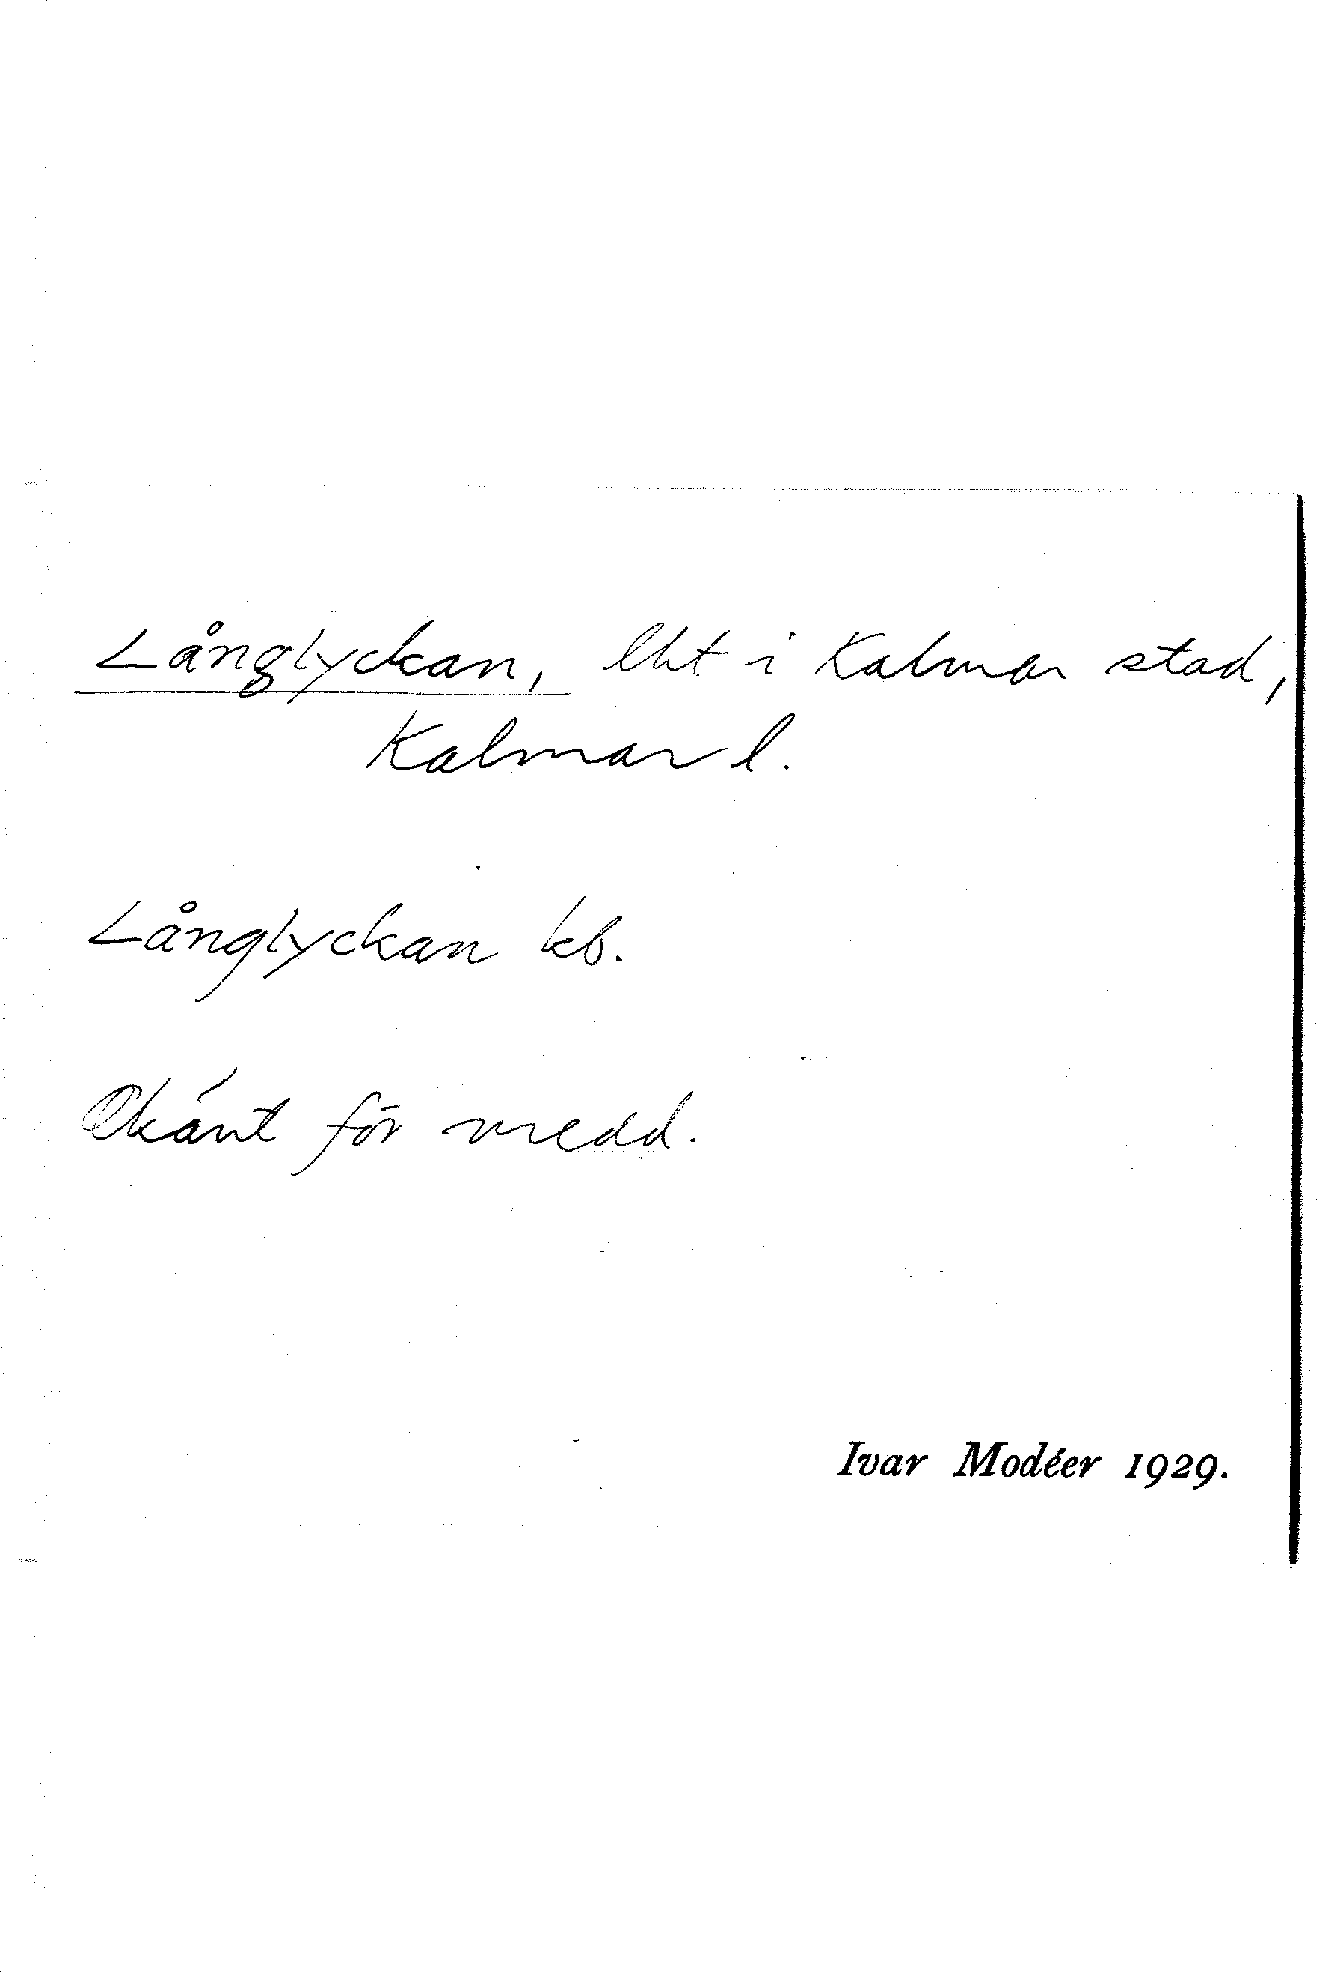 Långlyckan, lht i Kalmar stad,
Kalmar l.
Långlyckan kb.
Okänt för medd.
Ivar Modéer 1929.